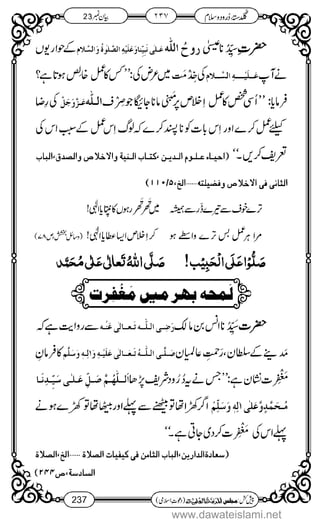 بیان نمبر 23
۲۳۷
گلدستۂ درود وسلام
حضرتِ سیِّدُنا عیسیٰ روحُ اللّٰہ عَلٰی نَبِیِّنَا وَعَلَیْہِ الصَّلٰوۃُ وَالسَّلَام کے حواریوں
نے آپ عَلَیْہِ السَّلَام کی خدمت میں عرض کی: ’’کس کا عمل خالص ہوتا ہے؟
فرمایا: ’’ اُسی شخص کا عمل اِخلاص پر مبنی مانا جائے گا جو صرف اللّٰہ عَزَّوَجَلَّ کی رِضا
کیلئے عمل کرے اور اِس بات کو ناپسند کرے کہ لوگ اِس عمل کے سبب اس کی
تعریف کریں۔‘‘ (احیاء علوم الدین، کتاب النیۃ والاخلاص والصدق،الباب
الثانی فی الاخلاص وفضیلتہ......الخ،۵/۱۱۰)
ترے خوف سے تیرے ڈر سے ہمیشہ میں تھر تھر رہوں کانپتا یاالٰہی!
مرا ہر عمل بس ترے واسطے ہو کر اِخلاص ایسا عطا یاالٰہی! (وسائل بخشش،ص۷۸)
صَلُّوْا عَلَی الْحَبِیْب! صَلَّی اللّٰہُ تَعَالٰی عَلٰی مُحَمَّد
لمحہ بھر میں مغفرت
حضرتِ سیِّدُنا اَنس بن مالک رَضِیَ اللّٰہُ تَعَالٰی عَنْہ سے رِوایت ہے کہ
مدینے کے سلطان، رَحمتِ عالمیان صَلَّی اللّٰہُ تَعَالٰی عَلَیْہِ وَاٰلِہٖ وَسَلَّم کا فرمانِ
مغفرت نشان ہے: ’’جس نے یہ دُرُود شریف پڑھا اَللّٰہُمَّ صَلِّ عَلٰی سَیِّدِنَا
مُحَمَّدٍ وَّعَلٰی اٰلِہٖ وَسَلِّمْ اگر کھڑا تھا تو بیٹھنے سے پہلے اور بیٹھا تھا تو کھڑے ہونے سے
پہلے اس کی مغفرت کر دی جاتی ہے۔‘‘
(سعادۃالدارین،الباب الثامن فی کیفیات الصلاۃ ......الخ،الصلاۃ
السادسۃ،ص۲۴۴)
237
www.dawateislami.net